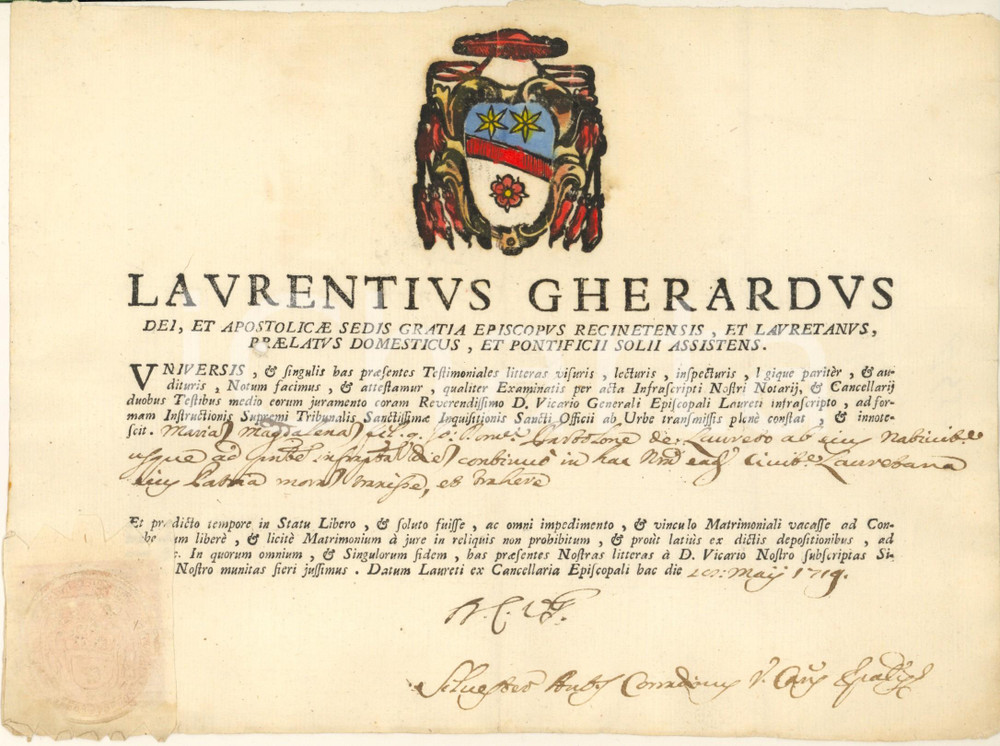 LAVRENTIVS GHERARDVS
DEI, ET APOSTOLICÆ SEDIS GRATIA EPISCOPVS RECINETENSIS, ET LAVRETANVS,
PRÆLATVS DOMESTICUS, ET PONTIFICII SOLII ASSISTENS.
VNIVERSIS, & singulis has præsentes Testimoniales litteras visuris, lecturis, inspecturis, l gique paritèr, & au-
dituris, Notum facimus, & attestamur, qualiter Examinatis per acta Infrascripti Nostri Notarij, & Cancellarij
duobus Testibus medio eorum juramento coram Reverendissimo D. Vicario Generali Episcopali Laureti infrascripto, ad for-
mam Instructionis Supremi Tribunalis Sanctissimæ Inquisitionis Sancti Officii ab Urbe transmissis plenè constat, & innote-
scit. Maria Magdalena fil. q. Jo: de Laureto ab eius
usque ad diē continuè in hac Lauretana
eius Patria moram traxisse, et trahere
Et prædicto tempore in Statu Libero, & soluto fuisse, ac omni impedimento, & vinculo Matrimoniali vacasse ad Con-
he um liberè, & licitè Matrimonium à jure in reliquis non prohibitum, & proùt latiùs ex dictis depositionibus, ad
In quorum omnium, & Singulorum fidem, has præsentes Nostras litteras à D. Vicario Nostro subscriptas Si-
Nostro munitas fieri jussimus. Datum Laureti ex Cancellaria Episcopali hac die Maij 1719.
Silvester Corradinus